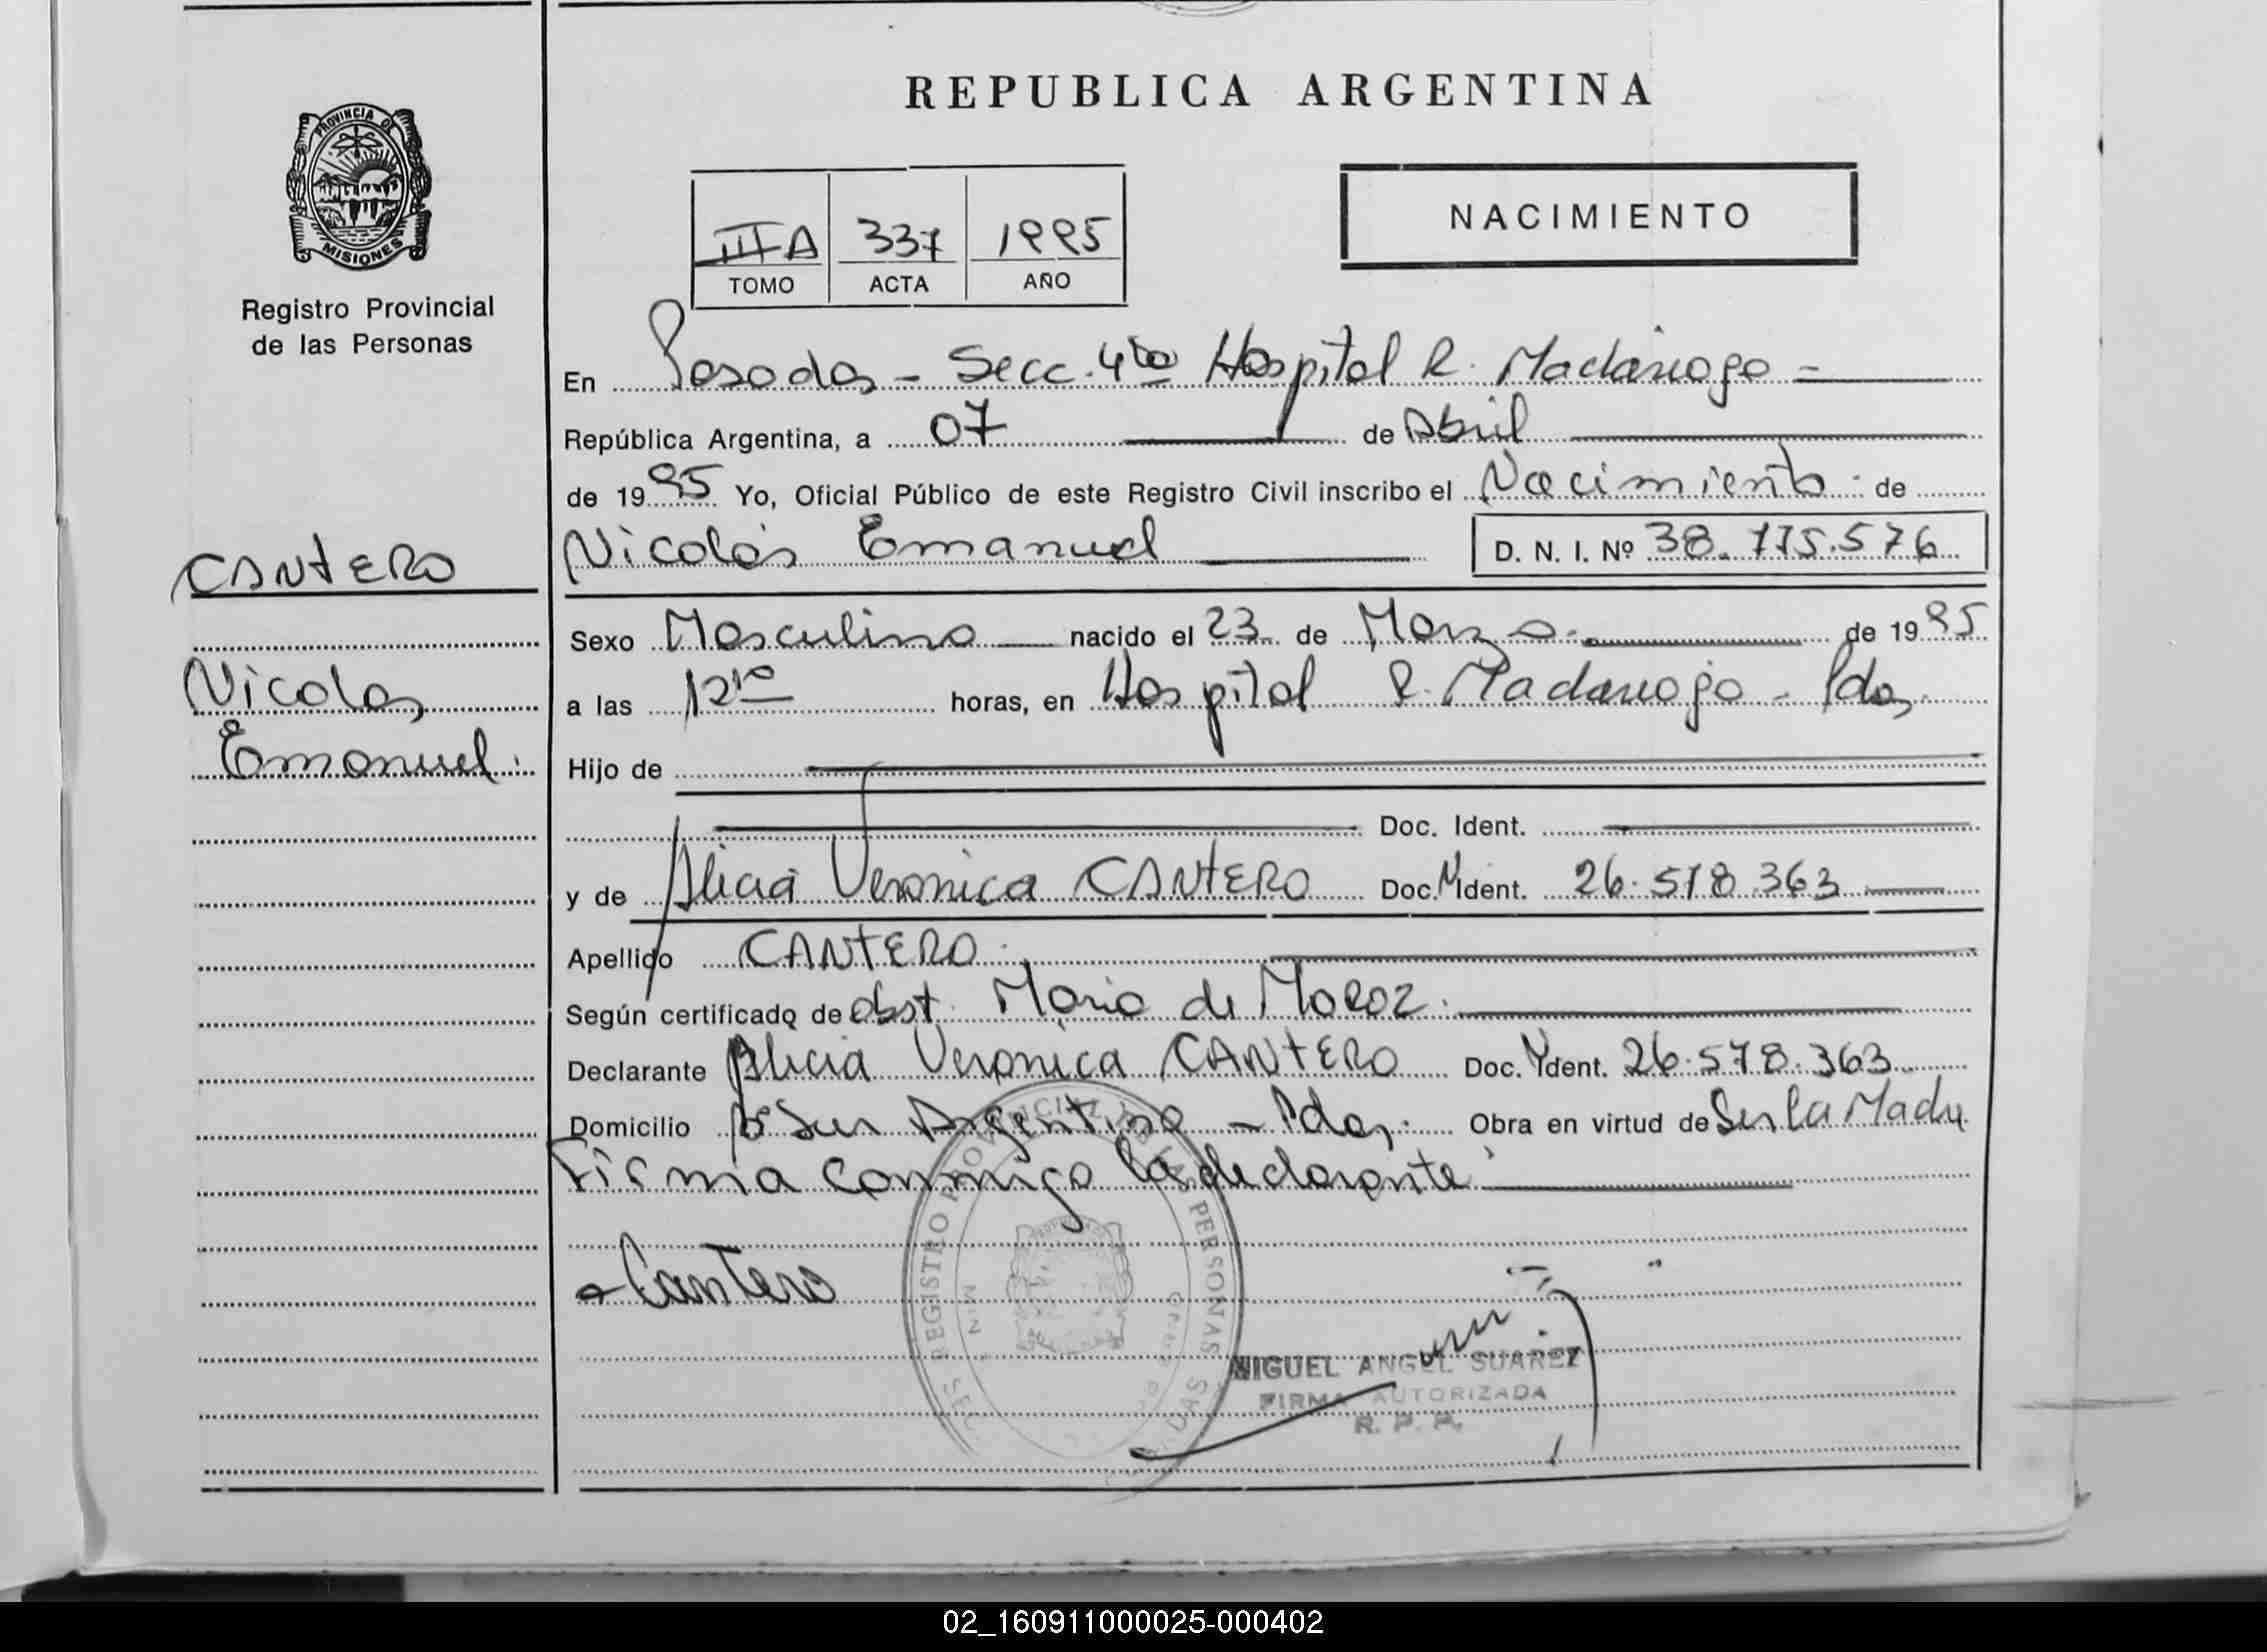 REPUBLICA ARGENTINA
PROVINCIA DE
MISIONES
Registro Provincial
de las Personas
IIIA 337 1995
TOMO ACTA AÑO
NACIMIENTO
En Posadas - Secc. 4ta Hospital R. Madariaga -
República Argentina, a 07 de Abril
de 1995 Yo, Oficial Público de este Registro Civil inscribo el Nacimiento de
CANTERO
Nicolás Emanuel D. N. I. Nº 38.775.576
Sexo Masculino nacido el 23 de Marzo de 1995
Nicolas
a las 12 horas, en Hospital R. Madariaga - Pdas
Emanuel.
Hijo de
Doc. Ident.
y de Alicia Veronica CANTERO Doc. Ident. 26.578.363
Apellido CANTERO.
Según certificado de obst. Maria de MOROZ.
Declarante Alicia Veronica CANTERO Doc. Ident. 26.578.363
Domicilio Bº Sur Argentino - Pdas. Obra en virtud de Ser la Madre
Firma conmigo la declarante
Cantero
REGISTRO PROVINCIAL DE LAS PERSONAS
MIGUEL ANGEL SUAREZ
FIRMA AUTORIZADA
R. P. P.
02_160911000025-000402